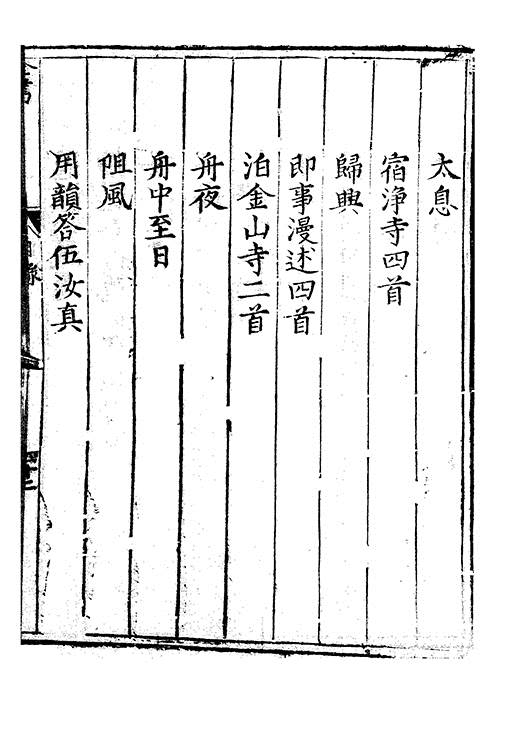 太息
宿淨寺四首
歸興
即事漫述四首
泊金山寺二首
舟夜
舟中至日
阻風
用韻答伍汝真
目錄